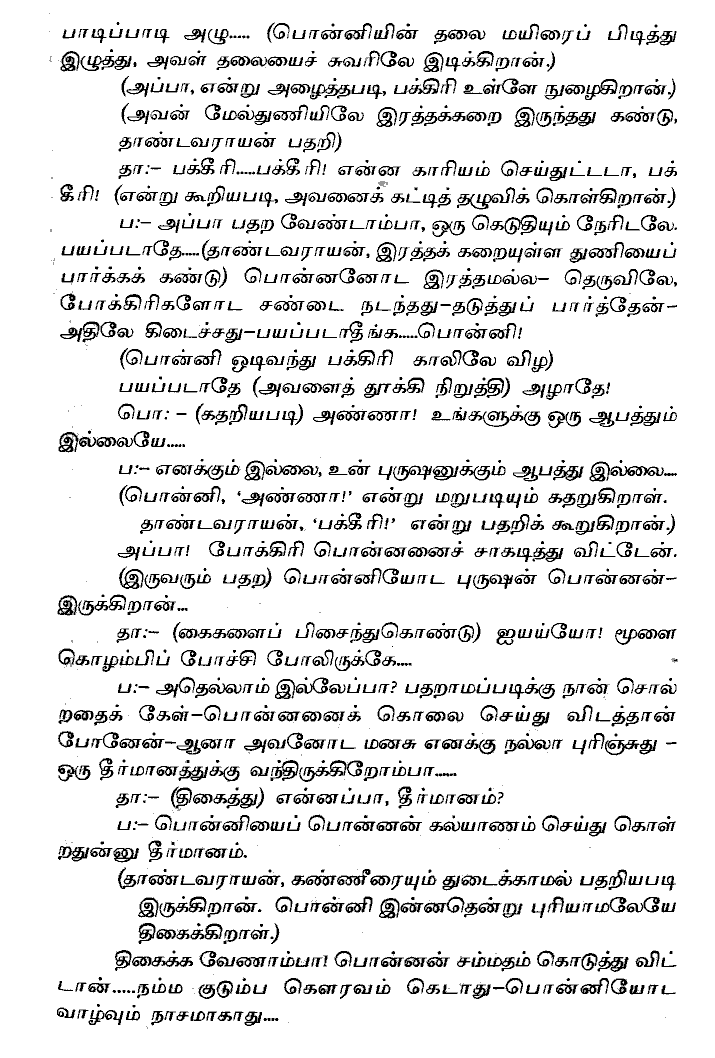 பாடிப்பாடி அழு..... (பொன்னியின் தலை மயிரைப் பிடித்து
இழுத்து, அவள் தலையைச் சுவரிலே இடிக்கிறான்.)
(அப்பா, என்று அழைத்தபடி, பக்கிரி உள்ளே நுழைகிறான்.)
(அவன் மேல்துணியிலே இரத்தக்கறை இருந்தது கண்டு,
தாண்டவராயன் பதறி)
தா:– பக்கீரி.....பக்கீரி! என்ன காரியம் செய்துட்டடா, பக்
கீரி! (என்று கூறியபடி, அவனைக் கட்டித் தழுவிக் கொள்கிறான்.)
ப:– அப்பா பதற வேண்டாம்பா, ஒரு கெடுதியும் நேரிடலே.
பயப்படாதே.....(தாண்டவராயன், இரத்தக் கறையுள்ள துணியைப்
பார்க்கக் கண்டு) பொன்னனோட இரத்தமல்ல– தெருவிலே,
போக்கிரிகளோட சண்டை நடந்தது–தடுத்துப் பார்த்தேன்–
அதிலே கிடைச்சது–பயப்படாதீங்க.....பொன்னி!
(பொன்னி ஒடிவந்து பக்கிரி காலிலே விழ)
பயப்படாதே (அவளைத் தூக்கி நிறுத்தி) அழாதே!
பொ: – (கதறியபடி) அண்ணா! உங்களுக்கு ஒரு ஆபத்தும்
இல்லையே.....
ப:– எனக்கும் இல்லை, உன் புருஷனுக்கும் ஆபத்து இல்லை....
(பொன்னி, ‘அண்ணா!’ என்று மறுபடியும் கதறுகிறாள்.
தாண்டவராயன், ‘பக்கீரி!’ என்று பதறிக் கூறுகிறான்.)
அப்பா! போக்கிரி பொன்னனைச் சாகடித்து விட்டேன்.
(இருவரும் பதற) பொன்னியோட புருஷன் பொன்னன்–
இருக்கிறான்...
தா:– (கைகளைப் பிசைந்துகொண்டு) ஐயய்யோ! மூளை
கொழம்பிப் போச்சி போலிருக்கே....
ப:– அதெல்லாம் இல்லேப்பா? பதறாமப்படிக்கு நான் சொல்
றதைக் கேள்–பொன்னனைக் கொலை செய்து விடத்தான்
போனேன்–ஆனா அவனோட மனசு எனக்கு நல்லா புரிஞ்சுது –
ஒரு தீர்மானத்துக்கு வந்திருக்கிறோம்பா......
தா:– (திகைத்து) என்னப்பா, தீர்மானம்?
ப:– பொன்னியைப் பொன்னன் கல்யாணம் செய்து கொள்
றதுன்னு தீர்மானம்.
(தாண்டவராயன், கண்ணீரையும் துடைக்காமல் பதறியபடி
இருக்கிறான். பொன்னி இன்னதென்று புரியாமலேயே
திகைக்கிறாள்.)
திகைக்க வேணாம்பா! பொன்னன் சம்மதம் கொடுத்து விட்
டான்.....நம்ம குடும்ப கௌரவம் கெடாது–பொன்னியோட
வாழ்வும் நாசமாகாது....